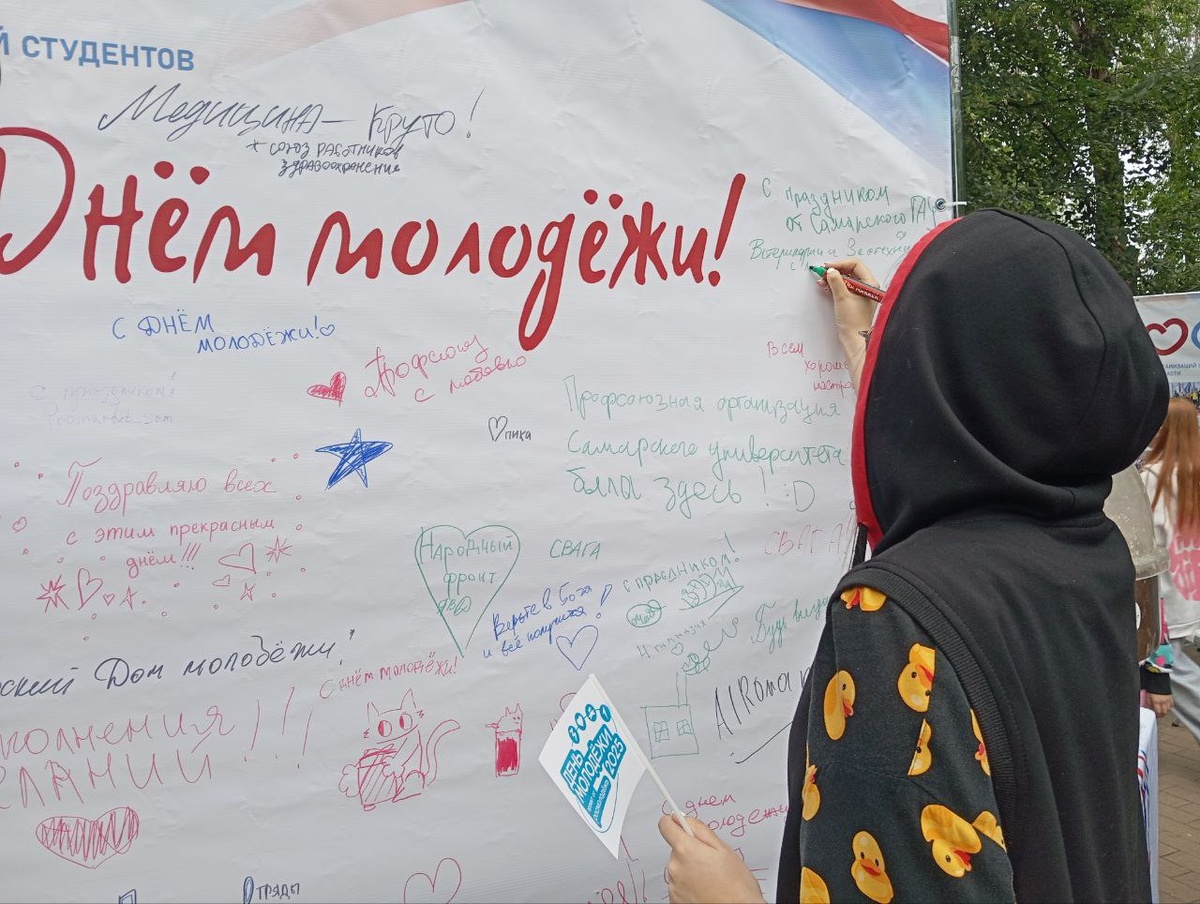 Й СТУДЕНТОВ
Медицина – круто!
+ союз работников
здравоохранения
Днём молодёжи!
С праздником
от Самарского ГАУ
С ДНЁМ
МОЛОДЁЖИ!
Профсоюз
с любовью
Всем
С праздником!
пика
Профсоюзная организация
Самарского университета
была здесь! :D
Поздравляю всех
с этим прекрасным
днём!!!
Народный
фронт
СВАГА
СВАГА
с праздником!
Верьте в Бога
и всё получится!
Будь
Дом молодёжи!
С днём молодёжи!
AIRoma
ДЕНЬ
МОЛОДЁЖИ
2025
С днём
молодёжи